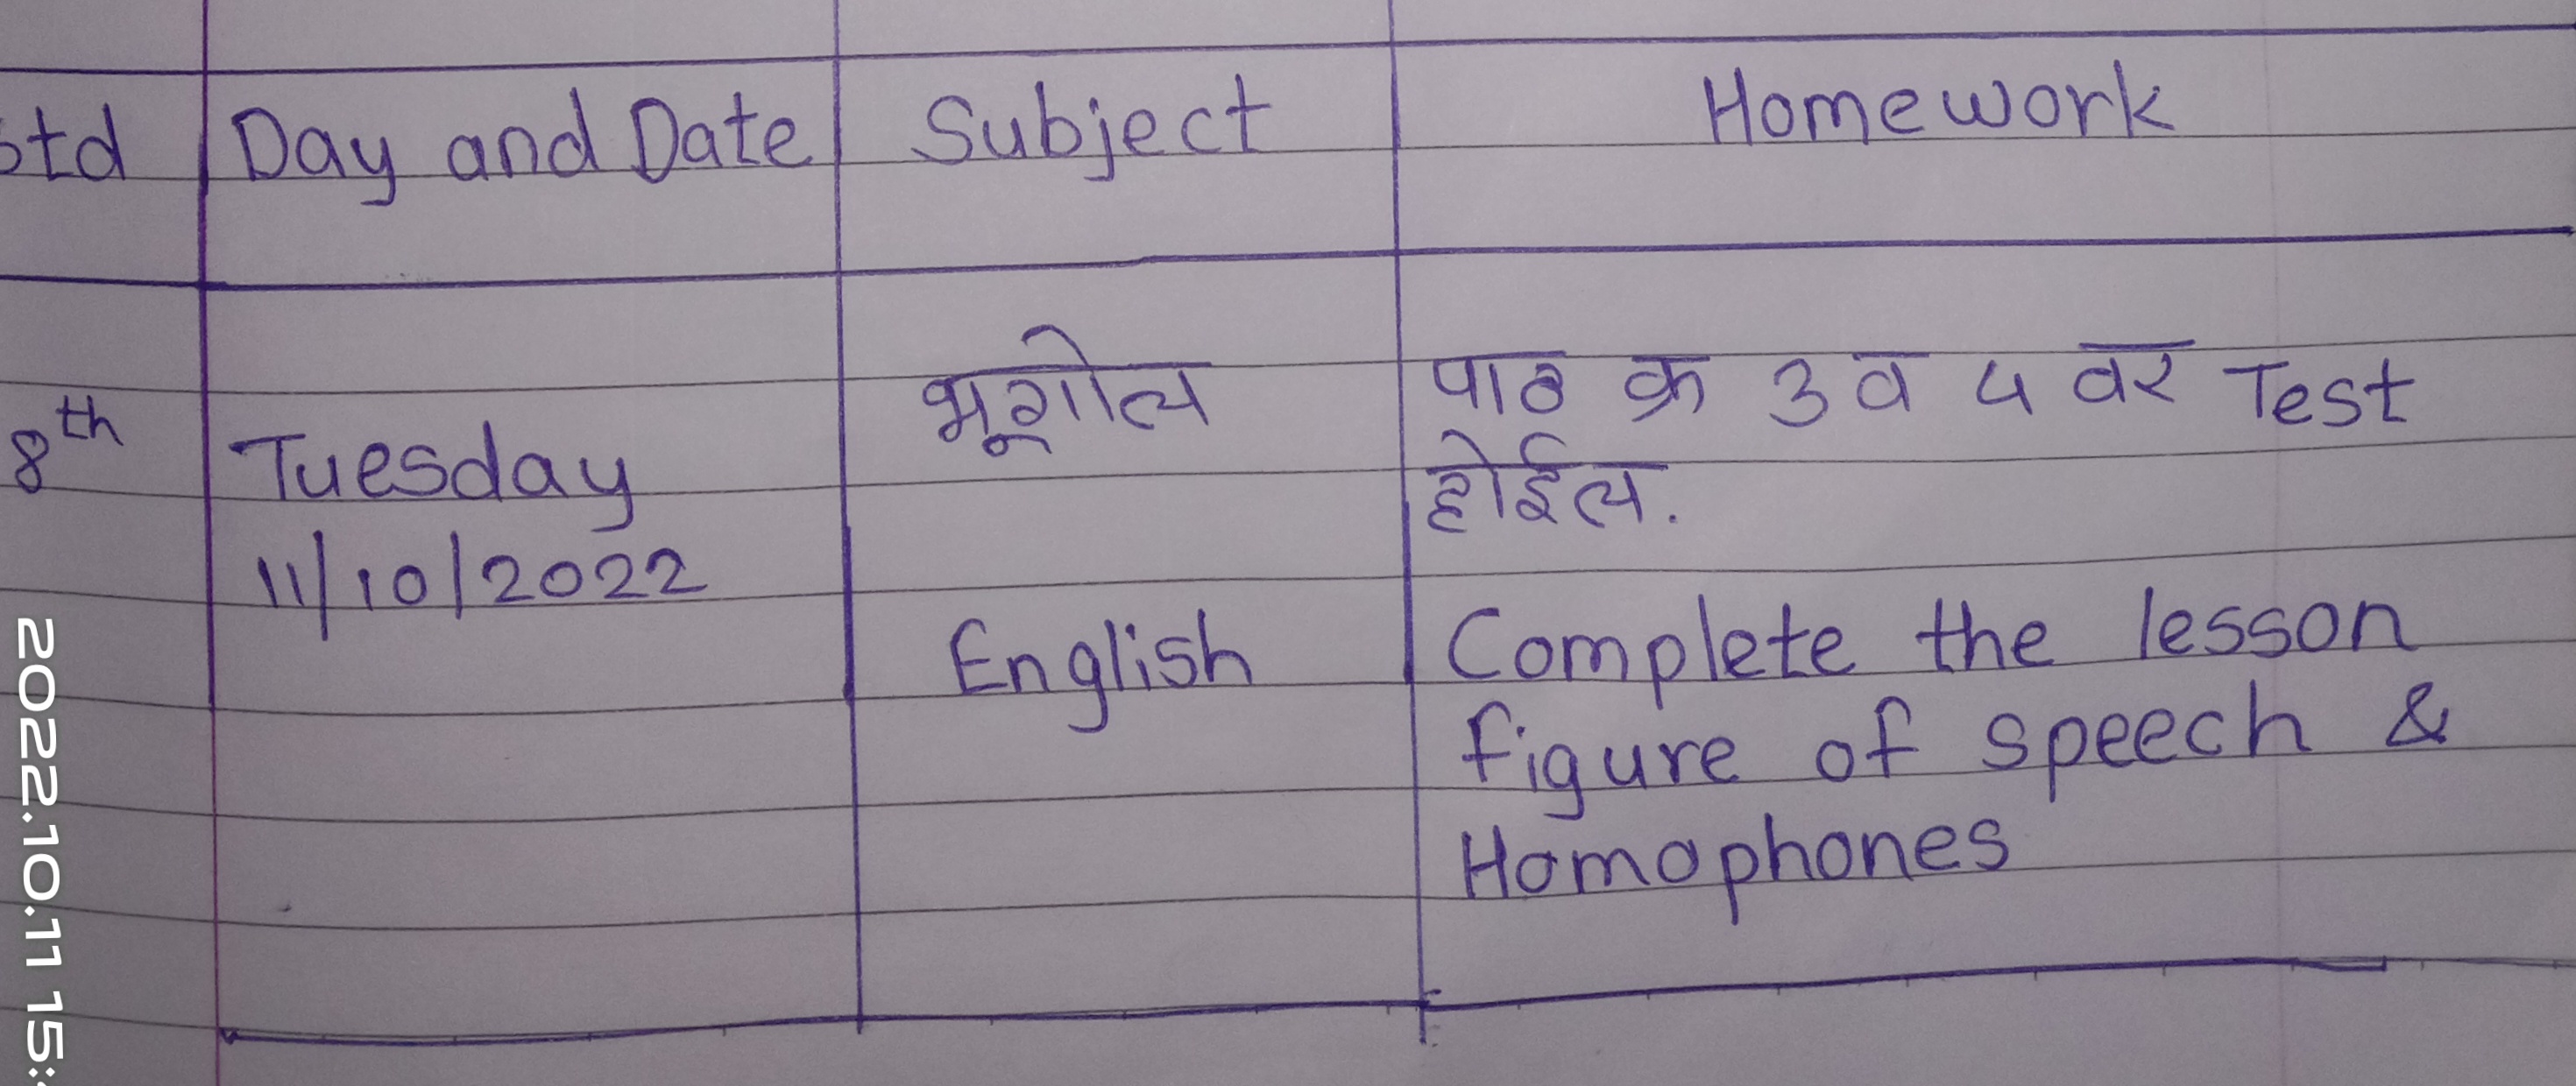 Std Day and Date Subject Homework
भूगोल पाठ क्र 3 व 4 वर Test
8th Tuesday होईल.
11/10/2022
English Complete the lesson
figure of speech &
Homophones
2022.10.11 15: